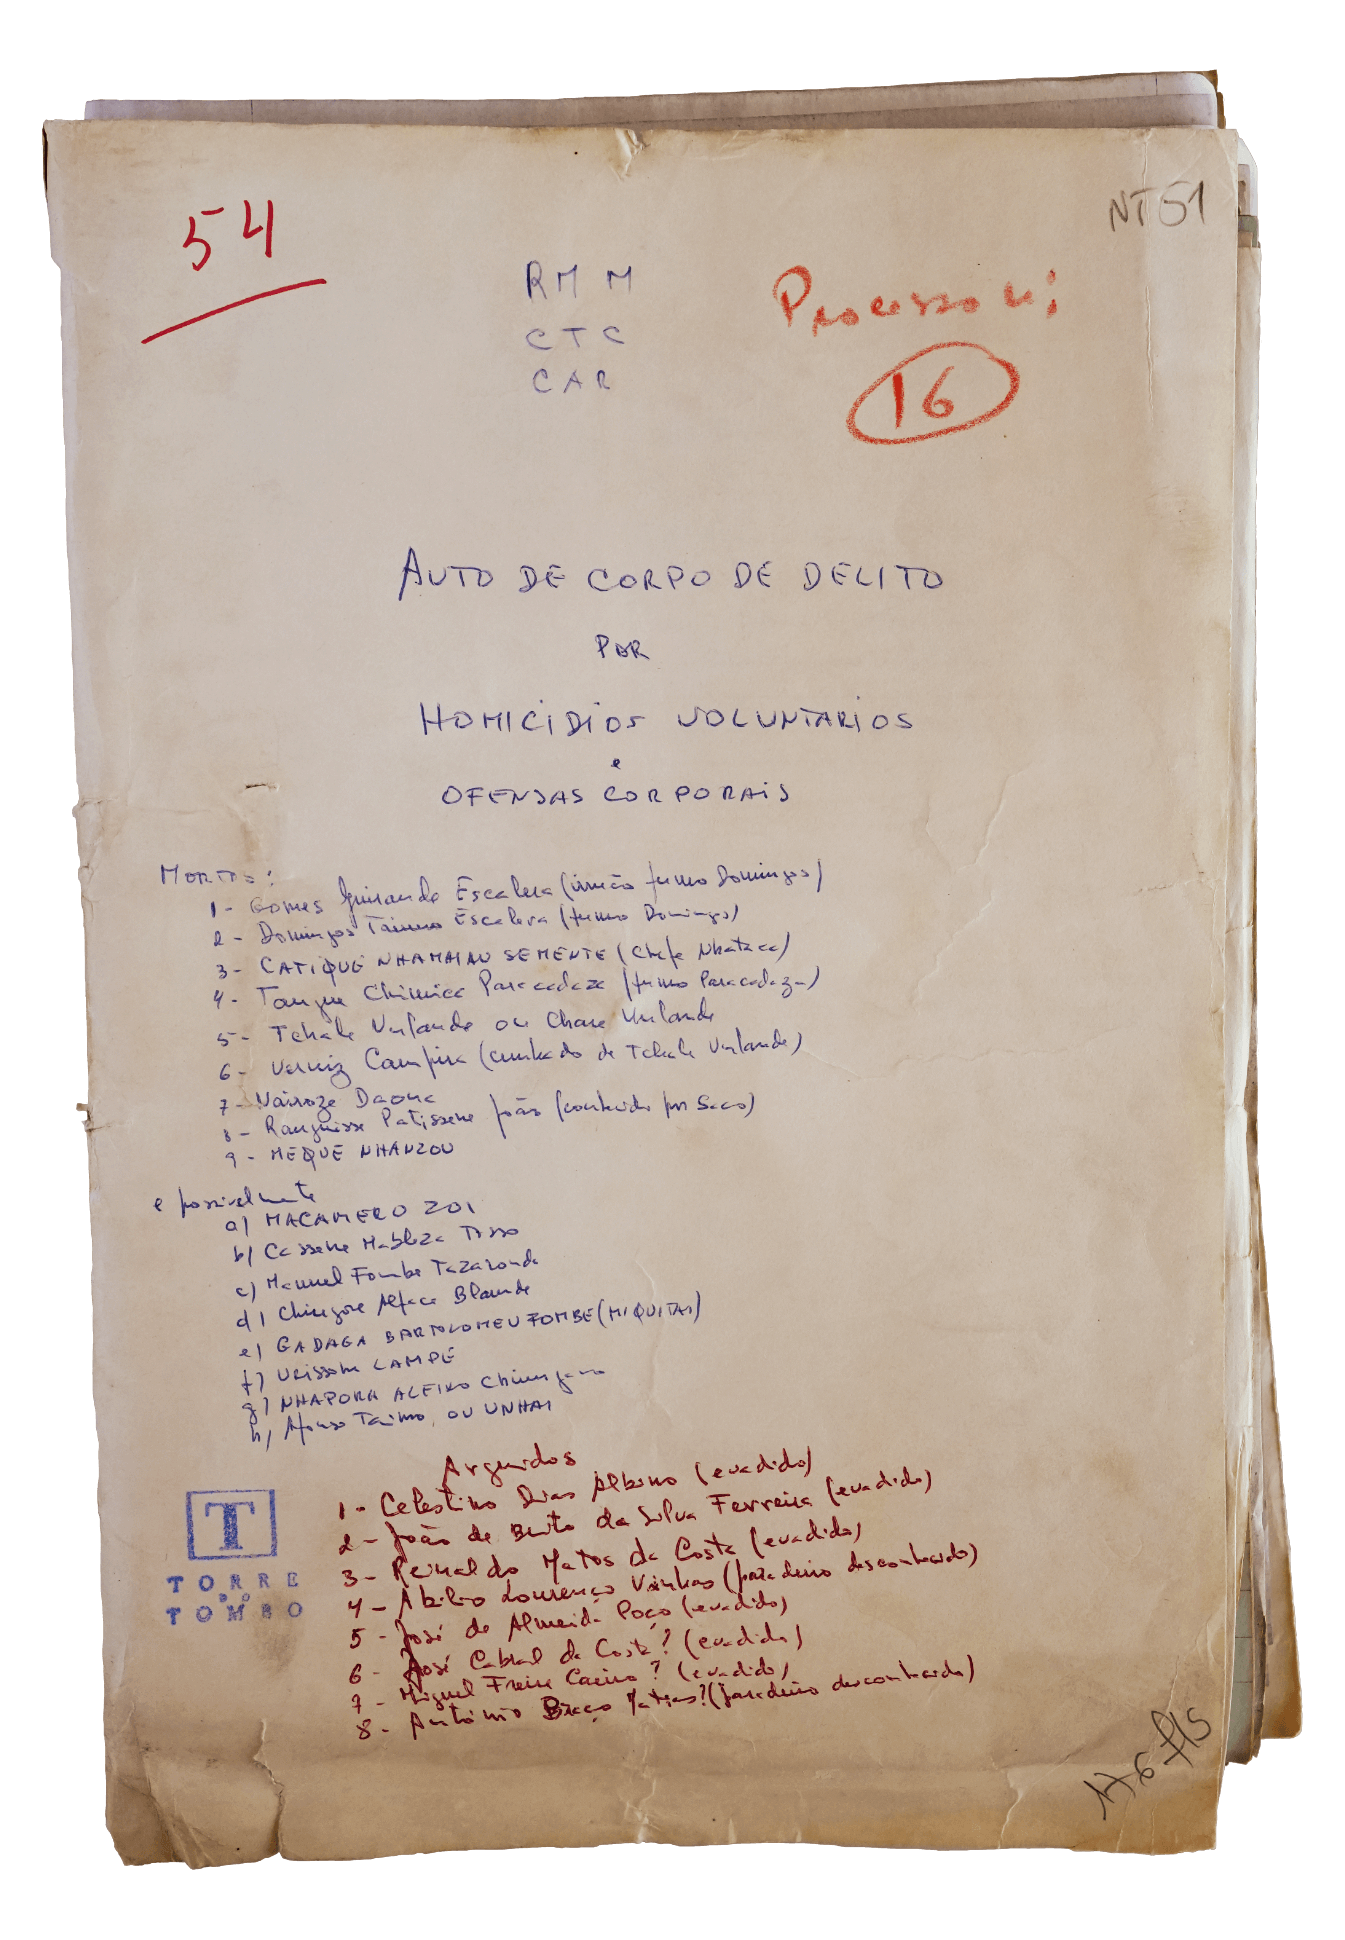 54
NT 51
RMM
CTC
CAR
Processo nº
16
AUTO DE CORPO DE DELITO
POR
HOMICIDIOS VOLUNTARIOS
e
OFENSAS CORPORAIS
MORTOS:
1- Gomes Escaleva (irmão fumo Domingos)
2- Domingos Taimo Escaleva (fumo Domingos)
3- CATIQUE NHAMAIAU SEMENTE (Chefe Nhataca)
4- Tangue Chimica Paracadaza (fumo Paracadaza)
5- Tchale Unlande ou Chare Unlande
6- Verniz Campira (cunhado de Tchale Unlande)
7- Nairoze Daona
8- Ranguisse Patissene João (conhecido por Saco)
9- MEQUE NHANZOU
e possivelmente
a) MACAMERO ZOI
b) Cassene Tisso
c) Manuel Fombe Tazaronda
d) Alface Blaunde
e) GADAGA BARTOLOMEU FOMBE (MIQUITAI)
f) Urissone LAMPE
g) NHAPORA ALFIXO
h) Afonso Taimo, OU UNHAI
Arguidos
1- Celestino Dias Albino (evadido)
2- João de Brito da Silva Ferreira (evadido)
3- Reinaldo Matos da Costa (evadido)
4- Abilio Lourenço Vainhas (paradeiro desconhecido)
5- José de Almeida Poço (evadido)
6- José Cabral da Costa? (evadido)
7- Miguel Freire Caeiro? (evadido)
8- António Braço Matias? (paradeiro desconhecido)
T
TORRE
DO
TOMBO
176 fls